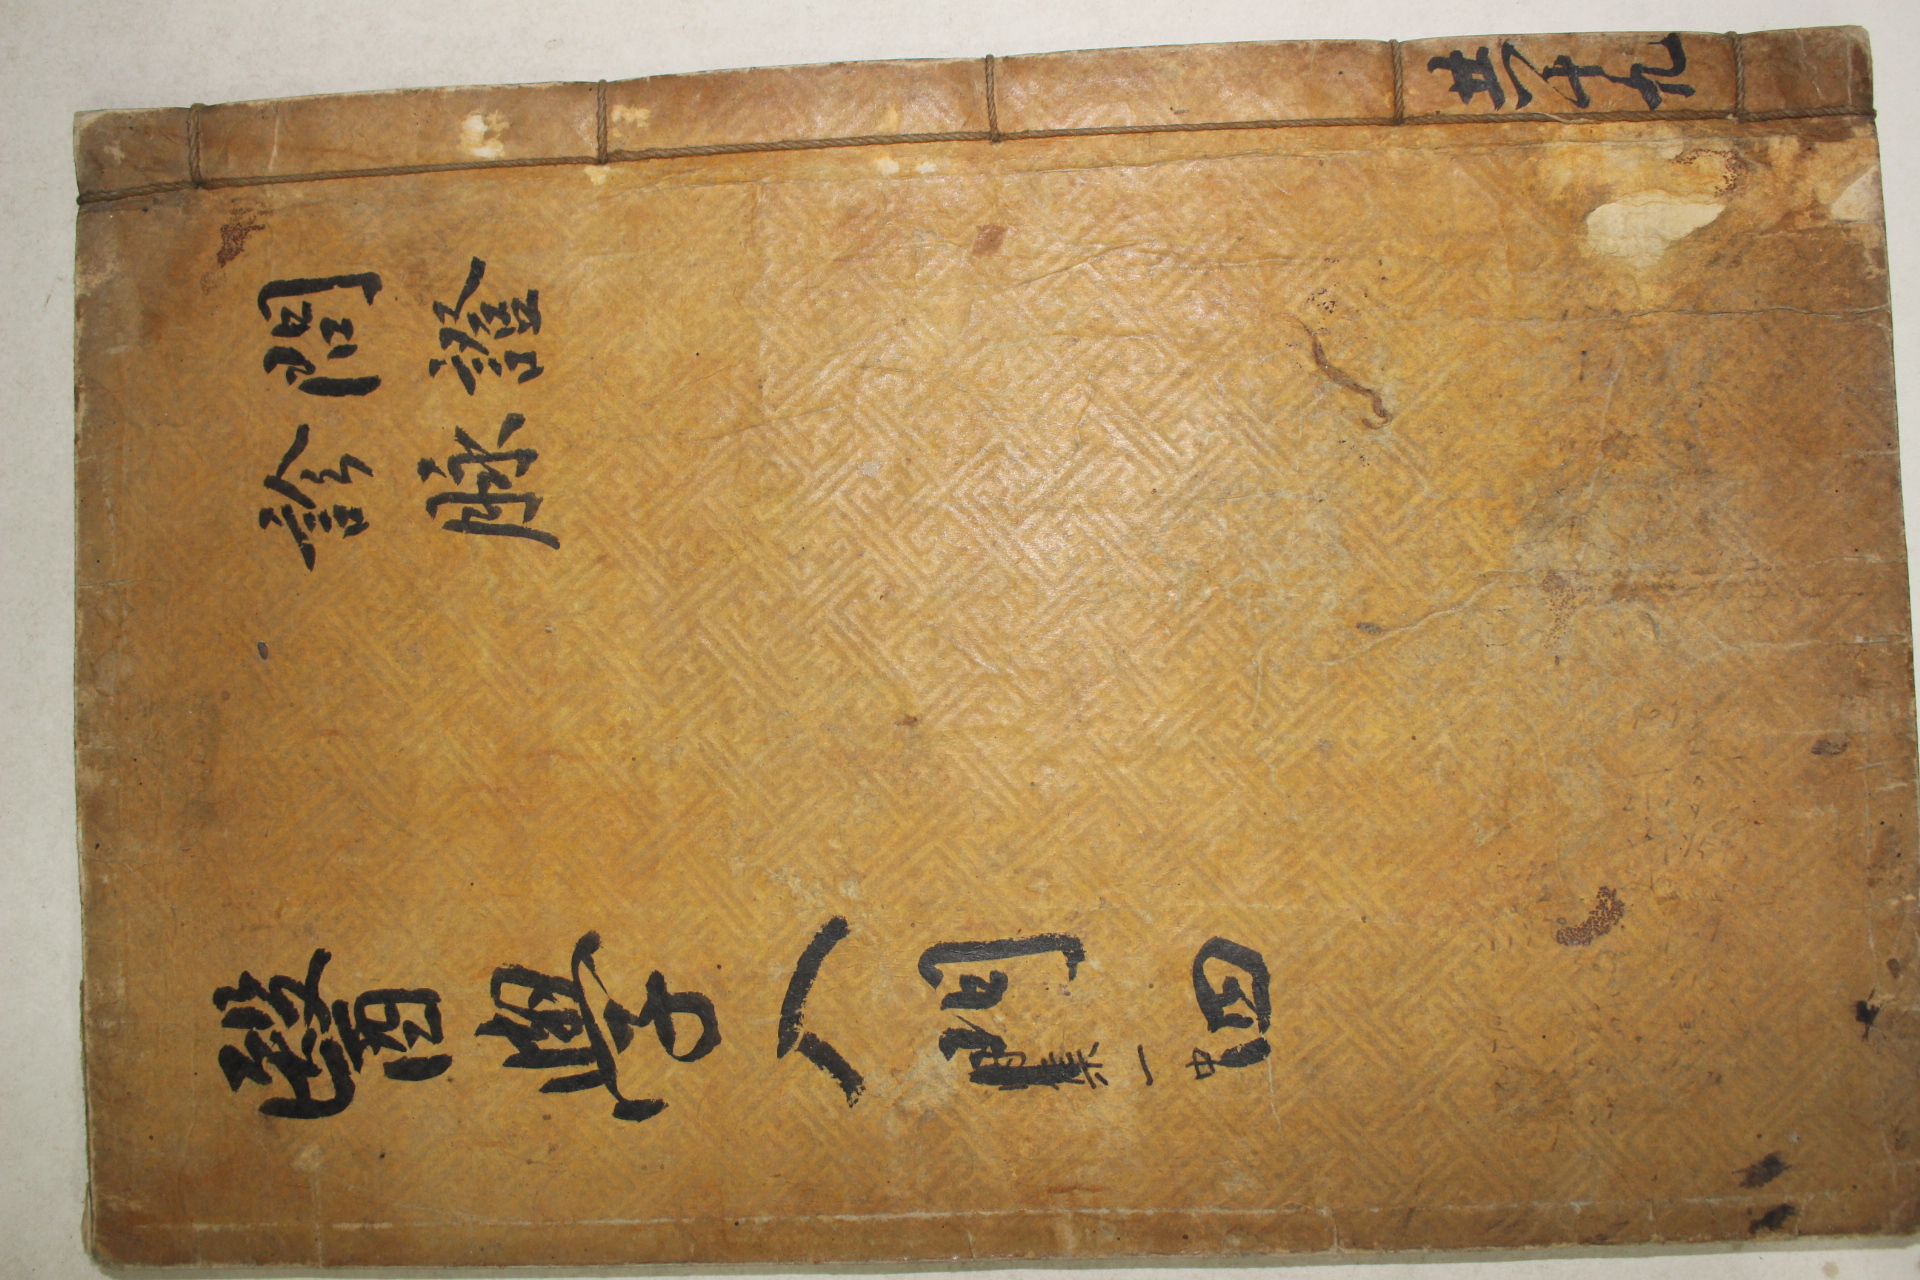 共十九
問證
診脈
醫學入門 四
內集一中